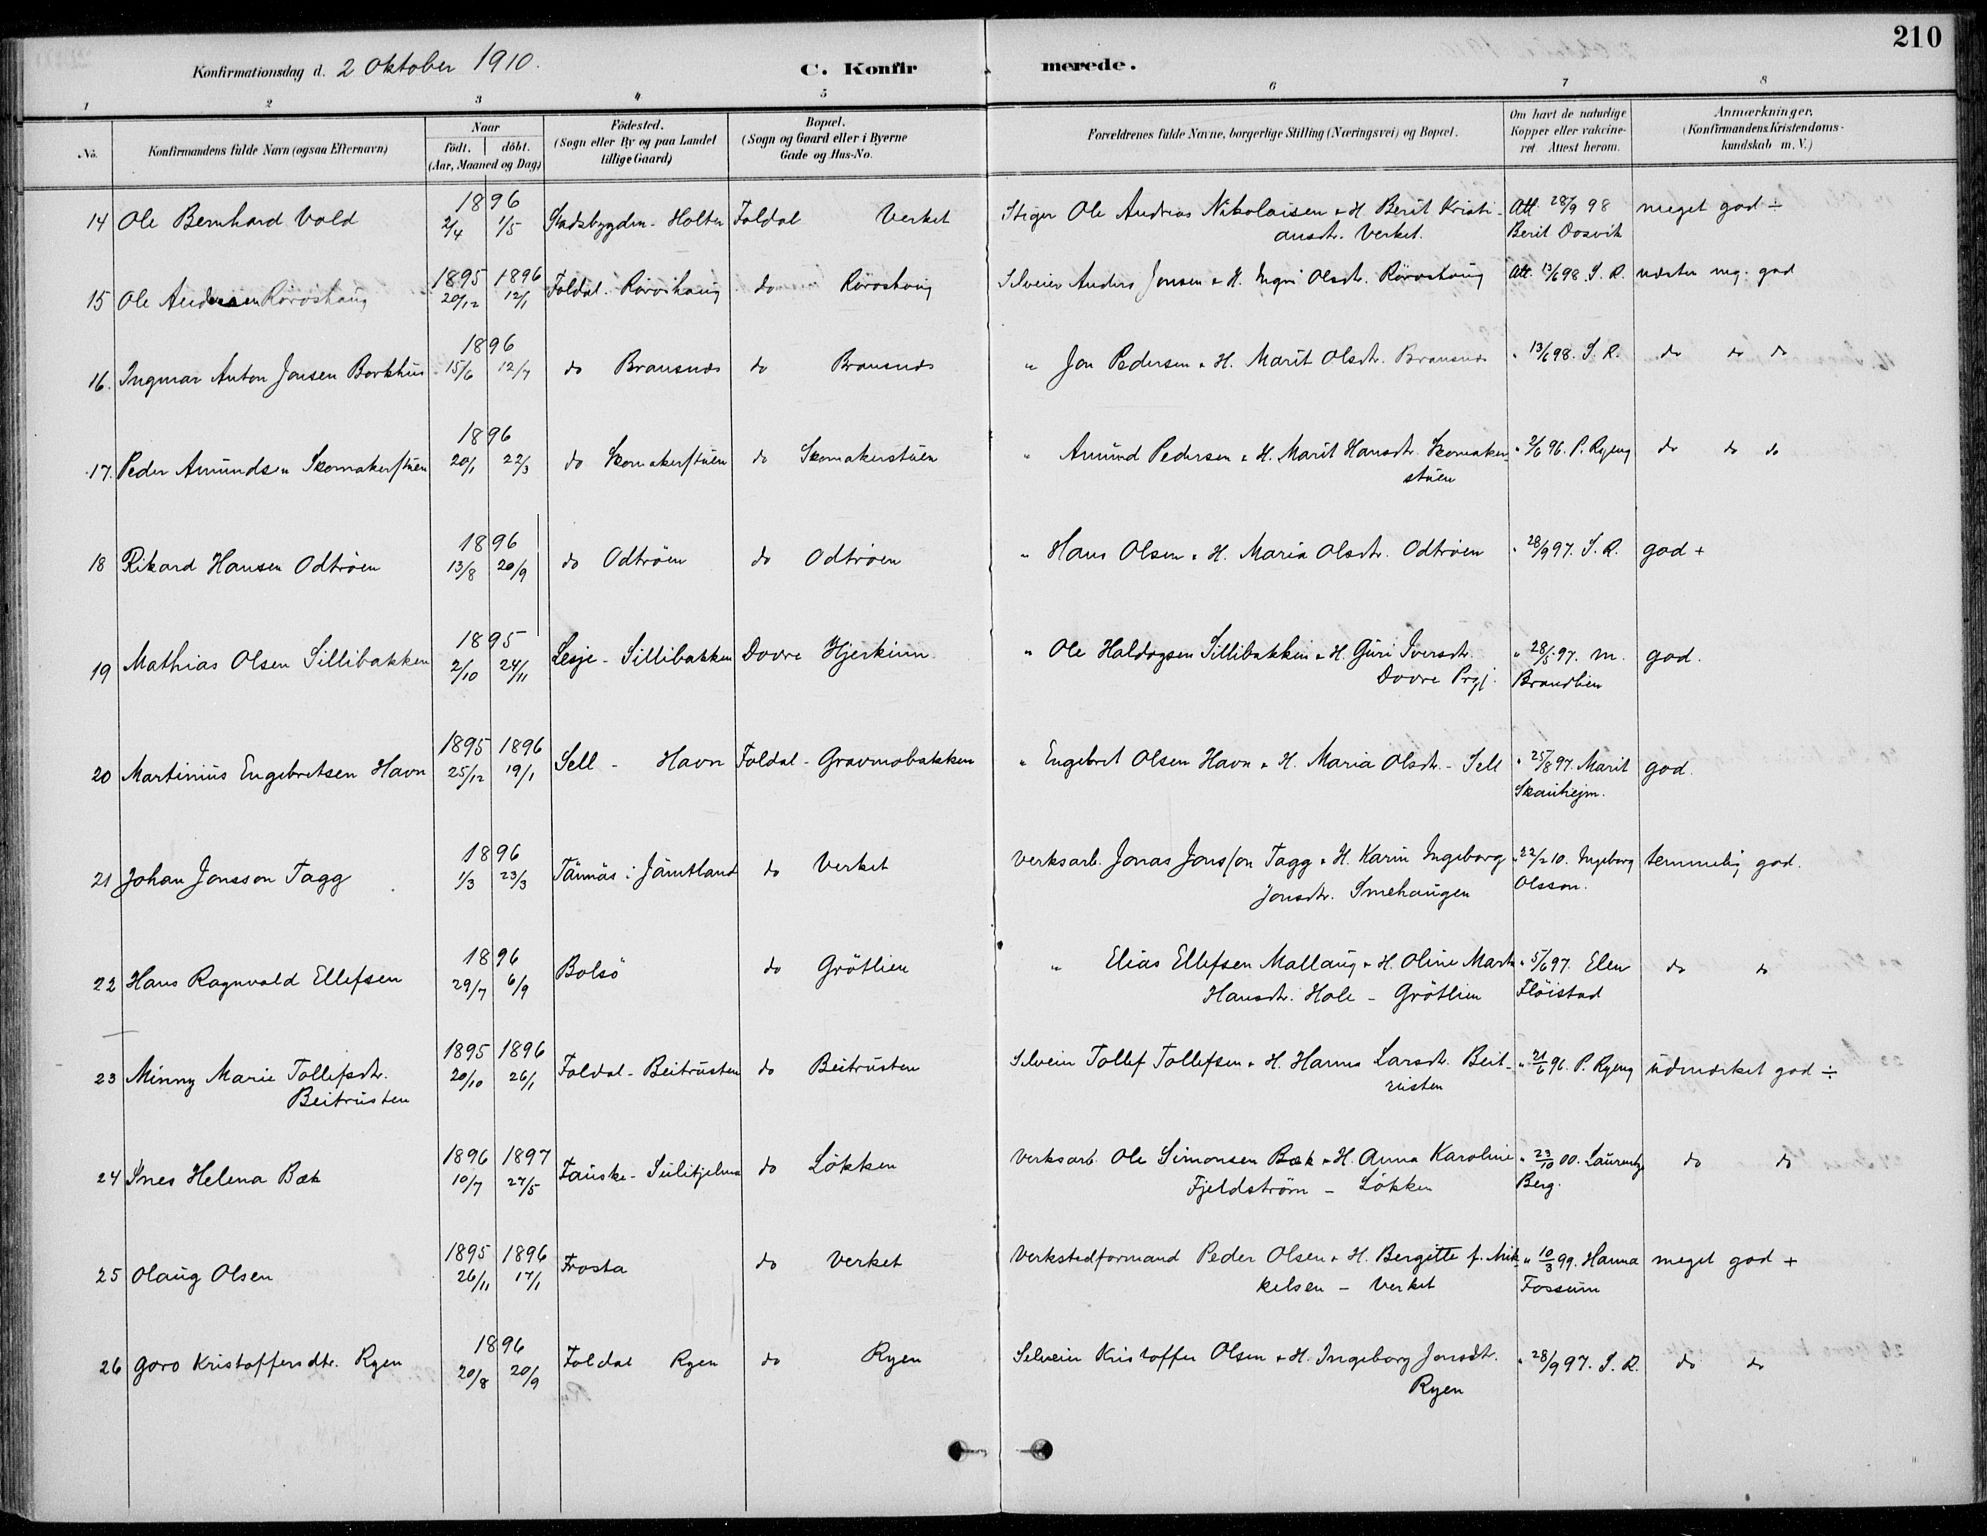 210
Konfirmationsdag d. 2 Oktober 1910. C. Konfirmerede.
1 2 3 4 5 6 7 8
No. Konfirmandens fulde Navn (ogsaa Efternavn) Naar födt. döbt. (Aar, Maaned og Dag) Födested. (Sogn eller By og paa Landet tillige Gaard) Bopæl. (Sogn og Gaard eller i Byerne Gade og Hus-No. Forældrenes fulde Navne, borgerlige Stilling (Næringsvei) og Bopæl. Om havt de naturlige Kopper eller vakcineret. Attest herom. Anmærkninger. (Konfirmandens Kristendomskundskab m. V.)
14 Ole Bernhard Vold 1896 2/4 1/5 Stadsbygden - Holten Foldal Verket Stiger Ole Andreas Nikolaisen & H. Berit Kristi-
ansdtr. Verket. Att. 28/9 98 Berit Dosvik meget god ÷
15 Ole Andersen Röroshaug 1895 20/12 1896 12/1 Foldal. Röroshaug do Röroshaug Selveier Anders Jonsen & H. Ingri Olsdtr. Röroshaug Att. 13/6 98. S. R. næsten meg. god
16. Ingmar Anton Jonsen Borkhus 1896 15/6 12/7 do Bransnes do Bransnes " Jon Pedersen & H. Marit Olsdtr. Bransnes " 13/6 98. S. R. do do do
17. Peder Amundsen Skomakerstuen 1896 20/1 22/3 do Skomakerstuen do Skomakerstuen " Amund Pedersen & H. Marit Hansdtr. Skomaker-
stuen " 2/6 96. P. Ryeng do do do
18 Rikard Hansen Odtröen 1896 13/8 20/9 do Odtröen do Odtröen " Hans Olsen & H. Maria Olsdtr. Odtröen " 28/9 97. S. R. god +
19 Mathias Olsen Sillibakken 1895 2/10 24/11 Lesje - Sillibakken Dovre Hjerkinn " Ole Haldogsen Sillibakken & H. Guri Iversdtr.
Dovre Prgj. " 28/5 97. M. Brandlien god.
20 Martinius Engebretsen Havn 1895 25/12 1896 19/1 Sell - Havn Foldal - Gravmobakken " Engebret Olsen Havn & H. Maria Olsdtr. - Sell " 25/8 97. Marit Skauhejm. god.
21 Johan Jonsson Tagg 1896 1/3 23/3 Tännäs i Jämtland do Verket Verksarb. Jonas Jonsson Tagg & H. Karin Ingeborg
Jonsdtr. Smehaugen " 22/2 10. Ingeborg Olsson. temmelig god.
22 Hans Ragnvald Ellefsen 1896 29/7 6/9 Bolsö do Grötlien " Elias Ellefsen Mallaug & H. Oline Marta
Hansdtr. Hole - Grötlien " 5/6 97. Elen Flöistad do do
23 Minny Marie Tollefsdtr.
Beitrusten 1895 20/10 1896 26/1 Foldal - Beitrusten do Beitrusten Selveier Tollef Tollefsen & H. Hanna Larsdtr. Beit-
rusten " 21/6 96. P. Ryeng udmerket god ÷
24 Ines Helena Bæk 1896 10/7 1897 27/5 Fauske - Sulitjelma do Lökken Verksarb. Ole Simonsen Bæk & H. Anna Karoline
Fjeldström - Løkken " 23/10 00. Laurentze Berg. do do
25 Olaug Olsen 1895 26/11 1896 17/1 Frosta do Verket Verkstedformand Peder Olsen & H. Bergitte f. Mik-
kelsen - Verket " 10/3 99. Hanna Fossum meget god +
26 Goro Kristoffersdtr. Ryen 1896 20/8 20/9 Foldal Ryen do Ryen Selveier Kristoffer Olsen & H. Ingeborg Jonsdtr.
Ryen " 28/9 97. S. R. do do